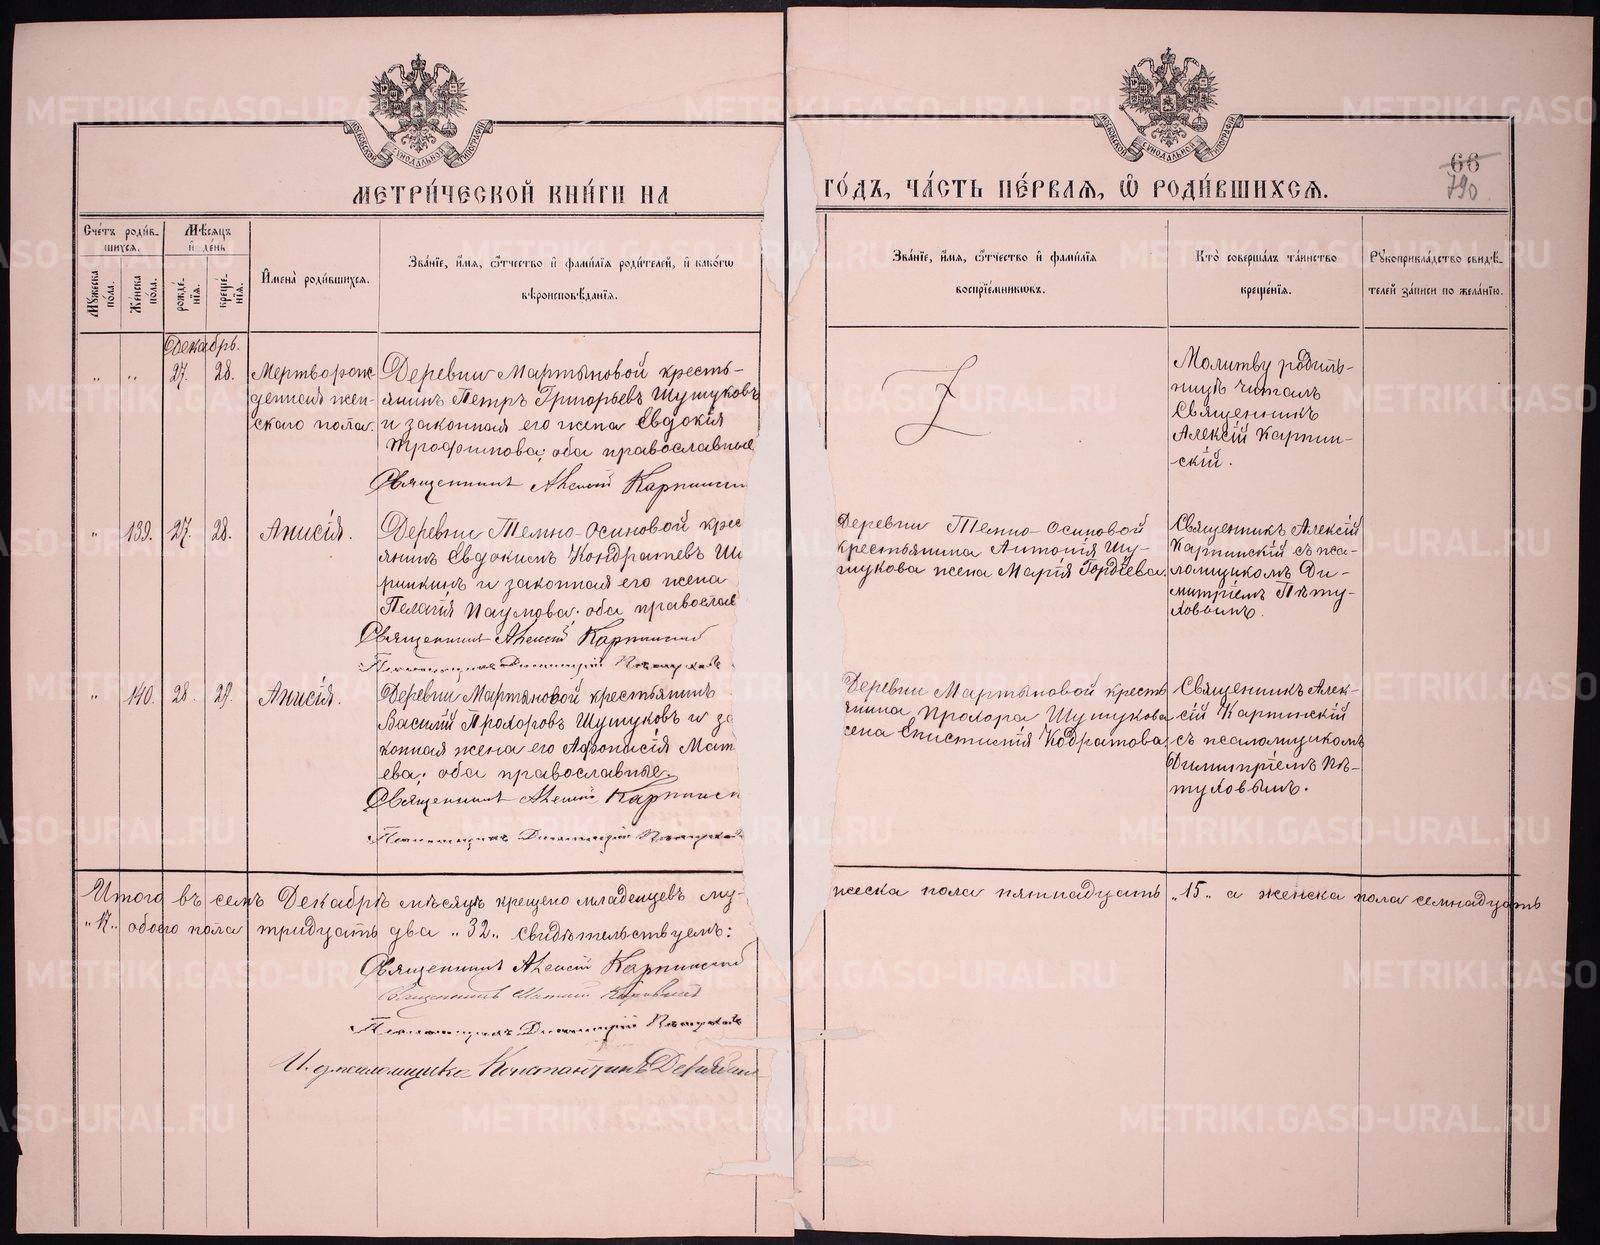 МОСКОВСКОЙ СѴНОДАЛЬНОЙ ТИПОГРАФІИ
МОСКОВСКОЙ СѴНОДАЛЬНОЙ ТИПОГРАФІИ
МЕТРИ́ЧЕСКОЙ КНИ́ГИ НА ГО́ДЪ, ЧА́СТЬ ПЕ́РВАЯ, Ѡ РОДИ́ВШИХСЯ.
66
790
Сче́тъ роди́в-
шихся.
Мѣ́сяцъ
и де́нь
Мꙋ́жеска
по́ла.
Же́нска
по́ла.
рожде́-
нїя.
креще́-
нїя.
Имена̀ роди́вшихся.
Зва́нїе, и́мя, ѻ҆́тчество и фами́лїя роди́телей, и како́гѡ
вѣроисповѣ́данїя.
Зва́нїе, и́мя, ѻ҆́тчество и фами́лїя
воспрїе́мниковъ.
Кто̀ соверша́лъ та́инство
креще́нїя.
Рꙋкоприкла́дство свидѣ́-
телей за́писи по жела́нїю.
Декабрь.
„ „ 27. 28.
Мертворож-
денная жен-
скаго пола.
Деревни Мартыновой кресть-
янинъ Петръ Григорьевъ Шушуковъ
и законная его жена Евдокія
Трофимова; оба православные
Священникъ Алексій Карпинск
Молитву родиль-
ницѣ читалъ
Священникъ
Алексій Карпин-
скій.
„ 139. 27. 28. Анисія.
Деревни Темно-Осиновой крес
янинъ Евдокимъ Кондратьевъ Ши
ринкинъ и законная его жена
Пелагія Наумова; оба православ
Священникъ Алексій Карпинскій
Псаломщикъ Димитрій Пѣтуховъ
Деревни Темно-Осиновой
крестьянина Антонія Шу-
шукова жена Марія Гордѣева.
Священникъ Алексій
Карпинскій съ пса-
ломщикомъ Ди-
митріемъ Пѣту-
ховымъ.
„ 140. 28. 29. Анисія.
Деревни Мартыновой крестьянинъ
Василій Прохоровъ Шушуковъ и за
конная жена его Афонасія Мат
ева; оба православные.
Священникъ Алексій Карпинск
Псаломщикъ Димитрій Пѣтуховъ
Деревни Мартыновой кресть
янина Прохора Шушукова
жена Епистимія Кодратова.
Священникъ Алек-
сій Карпинскій
съ псаломщикомъ
Димитріемъ Пѣ-
туховымъ.
Итого въ семъ Декабрѣ мѣсяцѣ крещено младенцевъ му- жеска пола пятнадцать „15„ а женска пола семнадцать
„17„ обоего пола тридцать два „32„ свидѣтельствуемъ:
Священникъ Алексій Карпинскій
Священникъ
Псаломщикъ Димитрій Пѣтуховъ
И. д. псаломщика Константинъ Дерябин
METRIKI.GASO-URAL.RU